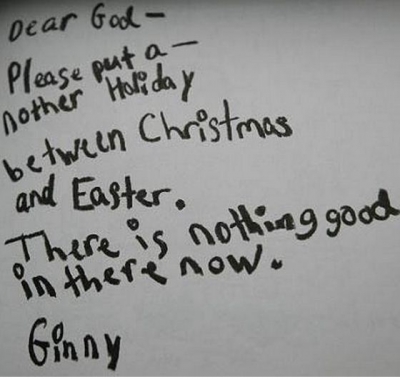 Dear God—
Please put a—
nother Holiday
between Christmas
and Easter.
There is nothing good
in there now.
Ginny